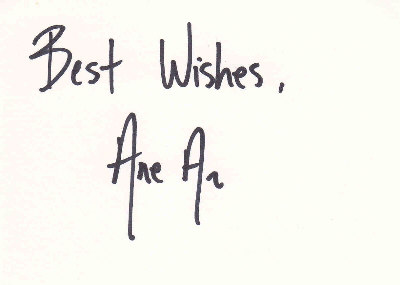 Best Wishes,
Ane